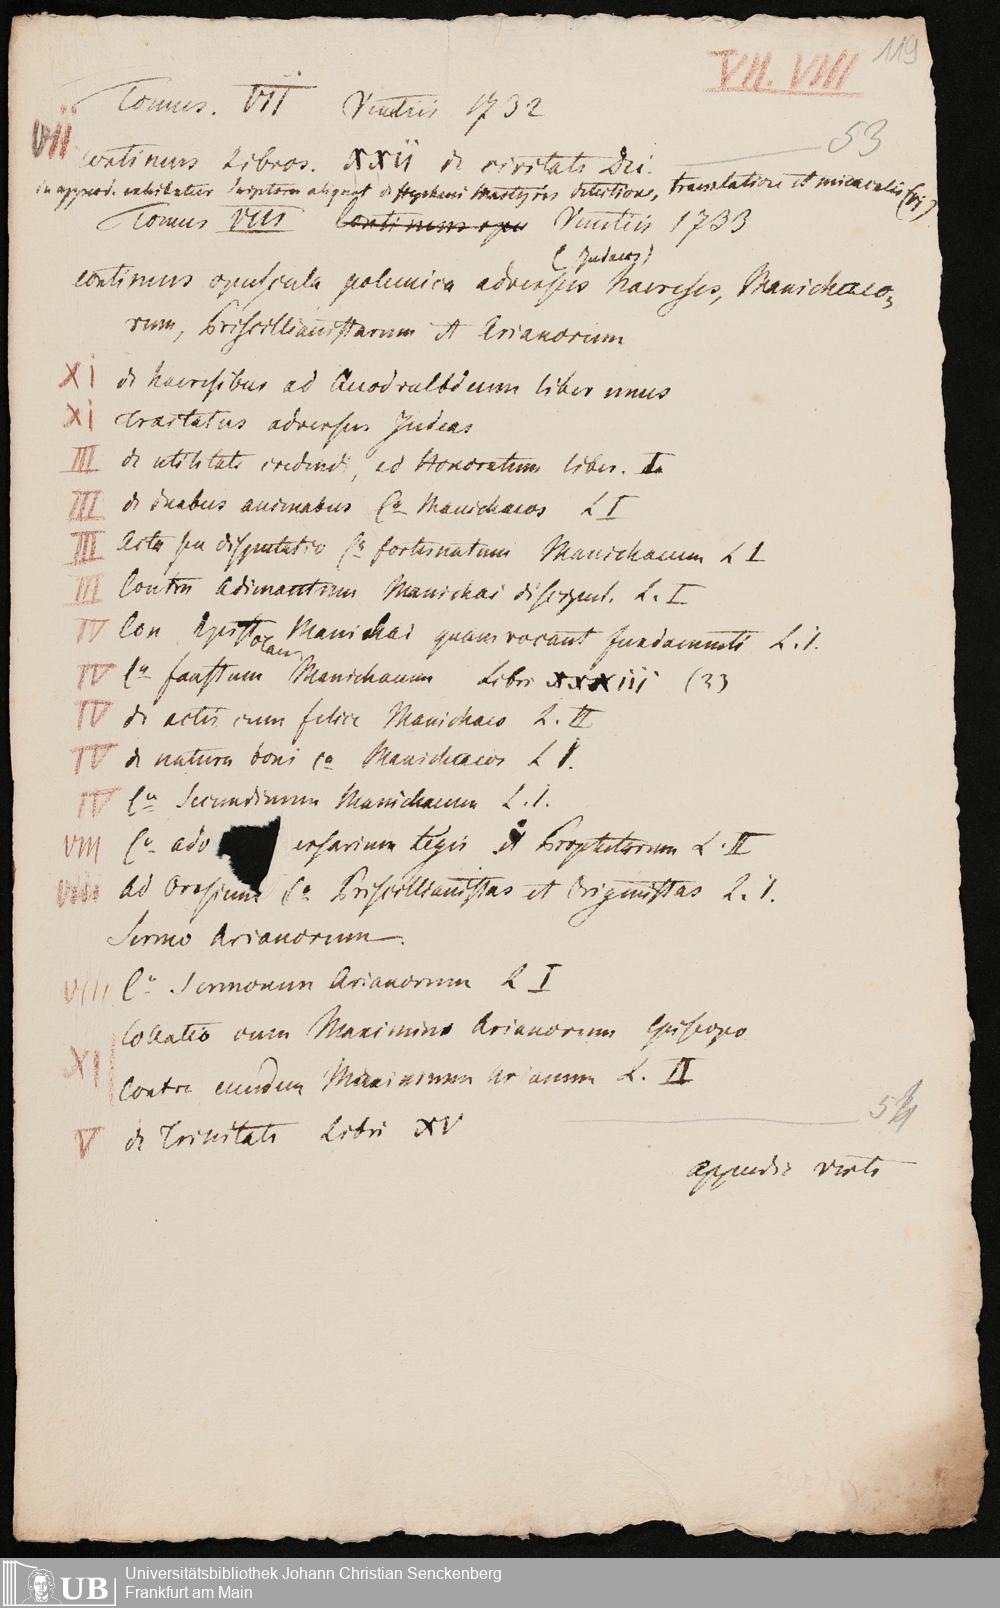 VII. VIII 119
Tomus. VII Venetiis 1732
53
vii continens Libros. XXii de civitate Dei.
in append. exhibetur scriptorum aliquot de Stephani Martyris detectione, translatione et miraculis (vi)
Tomus VIII Continens opu Venetiis 1733
(Judaeos)
continens opuscula polemica adversus haereses, Manichaeo=
rum, Priscillianistarum et Arianorum
Xi de haeresibus ad Quodvultdeum liber unus
Xi tractatus adversus Judeas
III de utilitate credendi, ad Honoratum liber. I.
III de duabus animabus Ca Manichaeos L I
III Acta seu disputatio Ca fortunatum Manichaeum L I
III Contra Adimantum Manichaei discipul. L. I
IV Con Epistolam Manichaei quam vocant fundamenti L. 1.
IV Ca faustum Manichaeum Libri XXXiii (33
IV de actis cum felice Manichaeo L. II
IV de natura boni ca Manichaeos L 1.
IV Ca Secundinum Manichaeum L. 1.
VIII Ca adversarium Legis et Prophetarum L. II
VIII Ad Orosium Ca Priscillianistas et Origenistas L. 1.
Sermo Arianorum.
VIII Ca Sermonem Arianorum L I
XI Collatio cum Maximino Arianorum episcopo
Contra eumdem Maximinum Arianum L. II
54
V de Trinitate Libri XV
appendix verte
UB Universitätsbibliothek Johann Christian Senckenberg
Frankfurt am Main